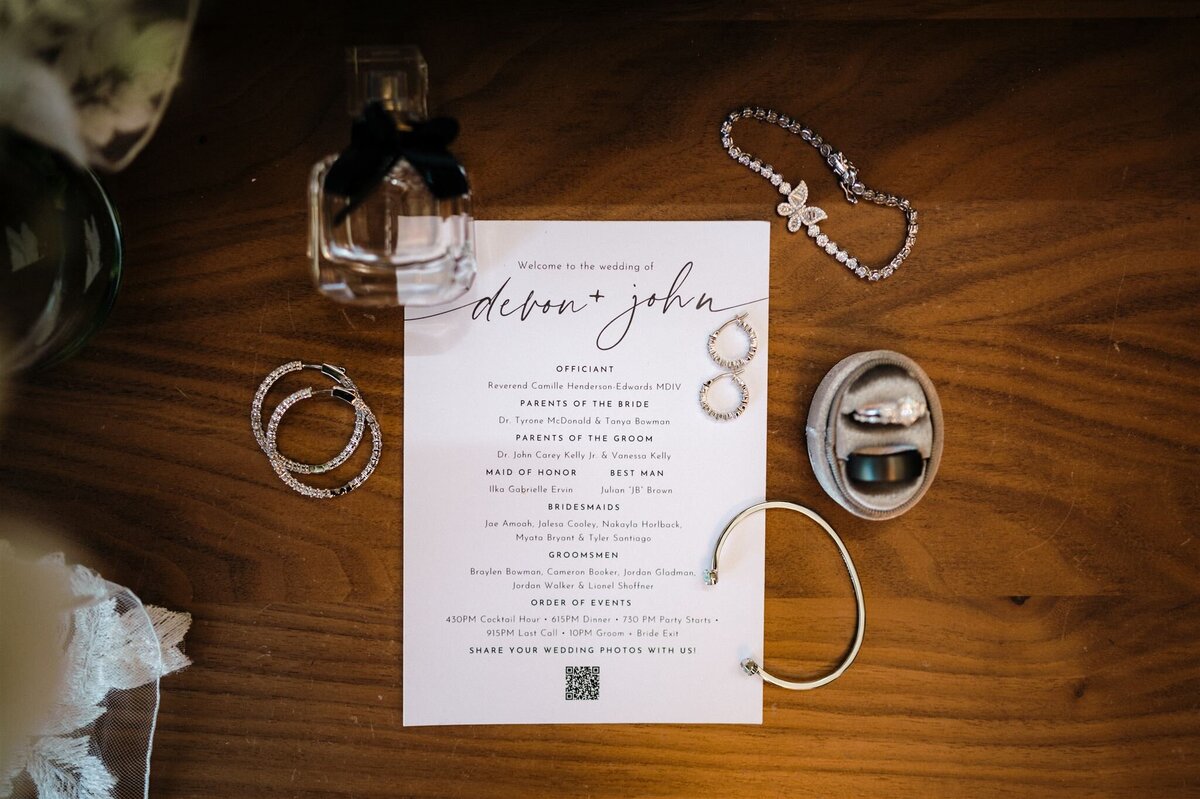 Welcome to the wedding of
devon + john
OFFICIANT
Reverend Camille Henderson-Edwards MDIV
PARENTS OF THE BRIDE
Dr. Tyrone McDonald & Tanya Bowman
PARENTS OF THE GROOM
Dr. John Carey Kelly Jr. & Vanessa Kelly
MAID OF HONOR BEST MAN
Ilka Gabrielle Ervin Julian "JB" Brown
BRIDESMAIDS
Jae Amoah, Jalesa Cooley, Nakayla Horlback,
Myata Bryant & Tyler Santiago
GROOMSMEN
Braylen Bowman, Cameron Booker, Jordan Gladman,
Jordan Walker & Lionel Shoffner
ORDER OF EVENTS
430PM Cocktail Hour • 615PM Dinner • 730 PM Party Starts •
915PM Last Call • 10PM Groom + Bride Exit
SHARE YOUR WEDDING PHOTOS WITH US!